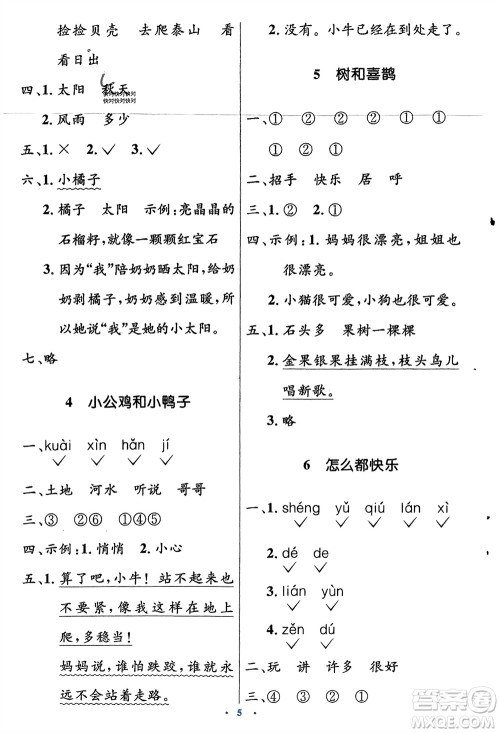 捡捡贝壳 去爬泰山 看
看日出
四、1. 太阳 秋天
快对快对快对
快对快对快对
2. 风雨 多少
五、1. ✕ 2. ✓ 3. ✓
六、1. 小橘子
2. 橘子 太阳 示例：亮晶晶的
石榴籽，就像一颗颗红宝石
3. 因为“我”陪奶奶晒太阳，给奶
奶剥橘子，奶奶感到温暖，所
以她说“我”是她的小太阳。
七、略
4 小公鸡和小鸭子
一、kuài xìn hǎn jí
✓ ✓ ✓ ✓
二、土地 河水 听说 哥哥
三、③ ②⑥ ①④⑤
四、示例：1. 悄悄 2. 小心
五、1. 算了吧，小牛！站不起来也
不要紧，像我这样在地上
爬，多稳当！
妈妈说，谁怕跌跤，谁就永
远不会站着走路。
2. 没有。小牛已经在到处走了。
5 树和喜鹊
一、① ① ② ② ②
① ① ①
二、招手 快乐 居 呼
三、1. ① ② 2. ①
四、示例：1. 妈妈很漂亮，姐姐也
很漂亮。
2. 小猫很可爱，小狗也很可爱。
五、1. 石头多 果树一棵棵
2. 金果银果挂满枝，枝头鸟儿
唱新歌。
3. 略
6 怎么都快乐
一、1. shéng yǔ qiú lán xì
✓ ✓ ✓ ✓ ✓
2. dé de
✓ ✓
3. lián yùn
✓ ✓
4. zěn dú
✓ ✓
二、玩 讲 许多 很
三、①④ ②③
5